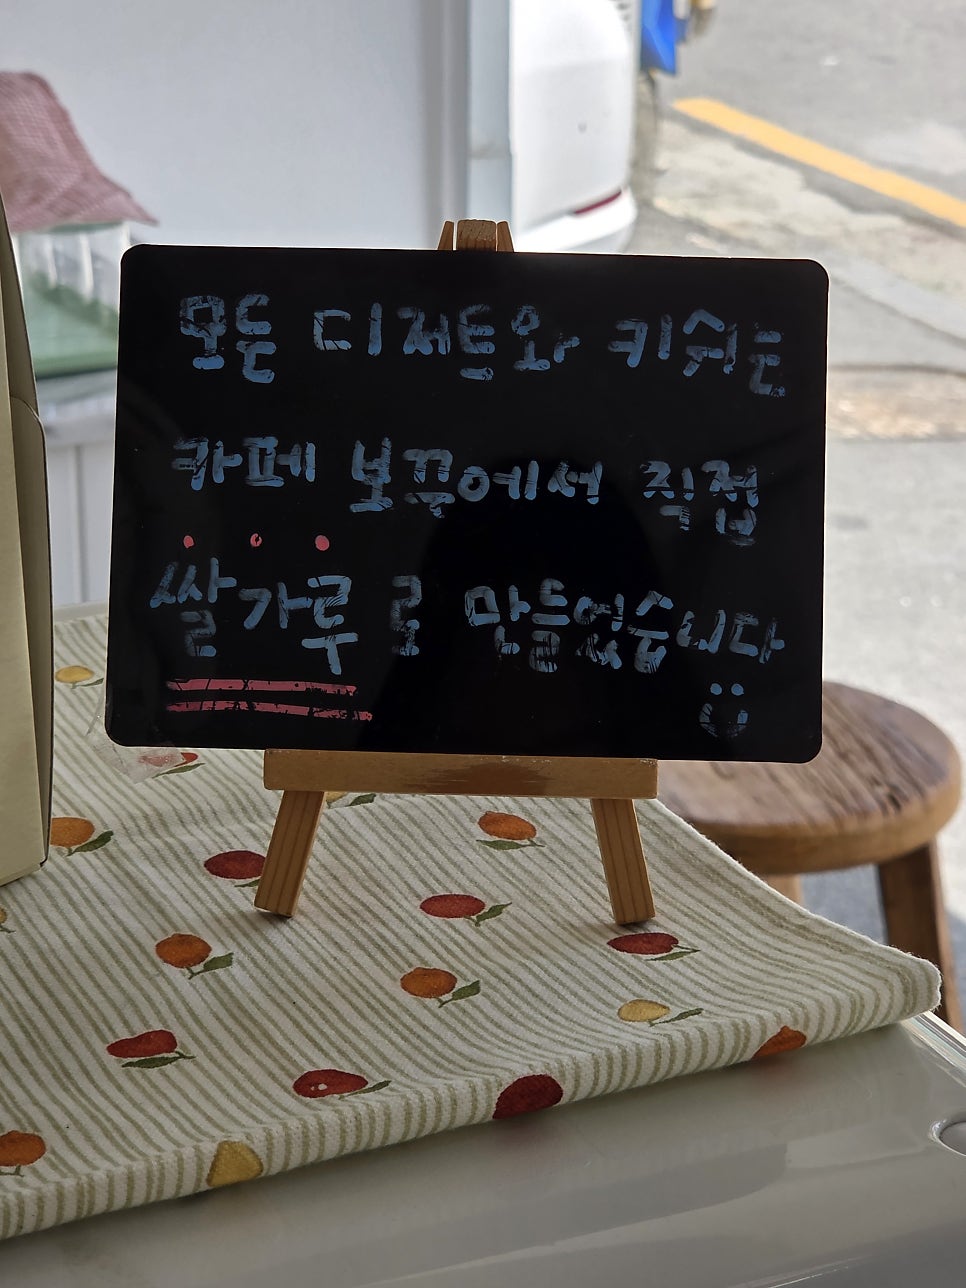 모든 디저트와 키쉬는
카페 보뀨에서 직접
쌀가루로 만들었습니다